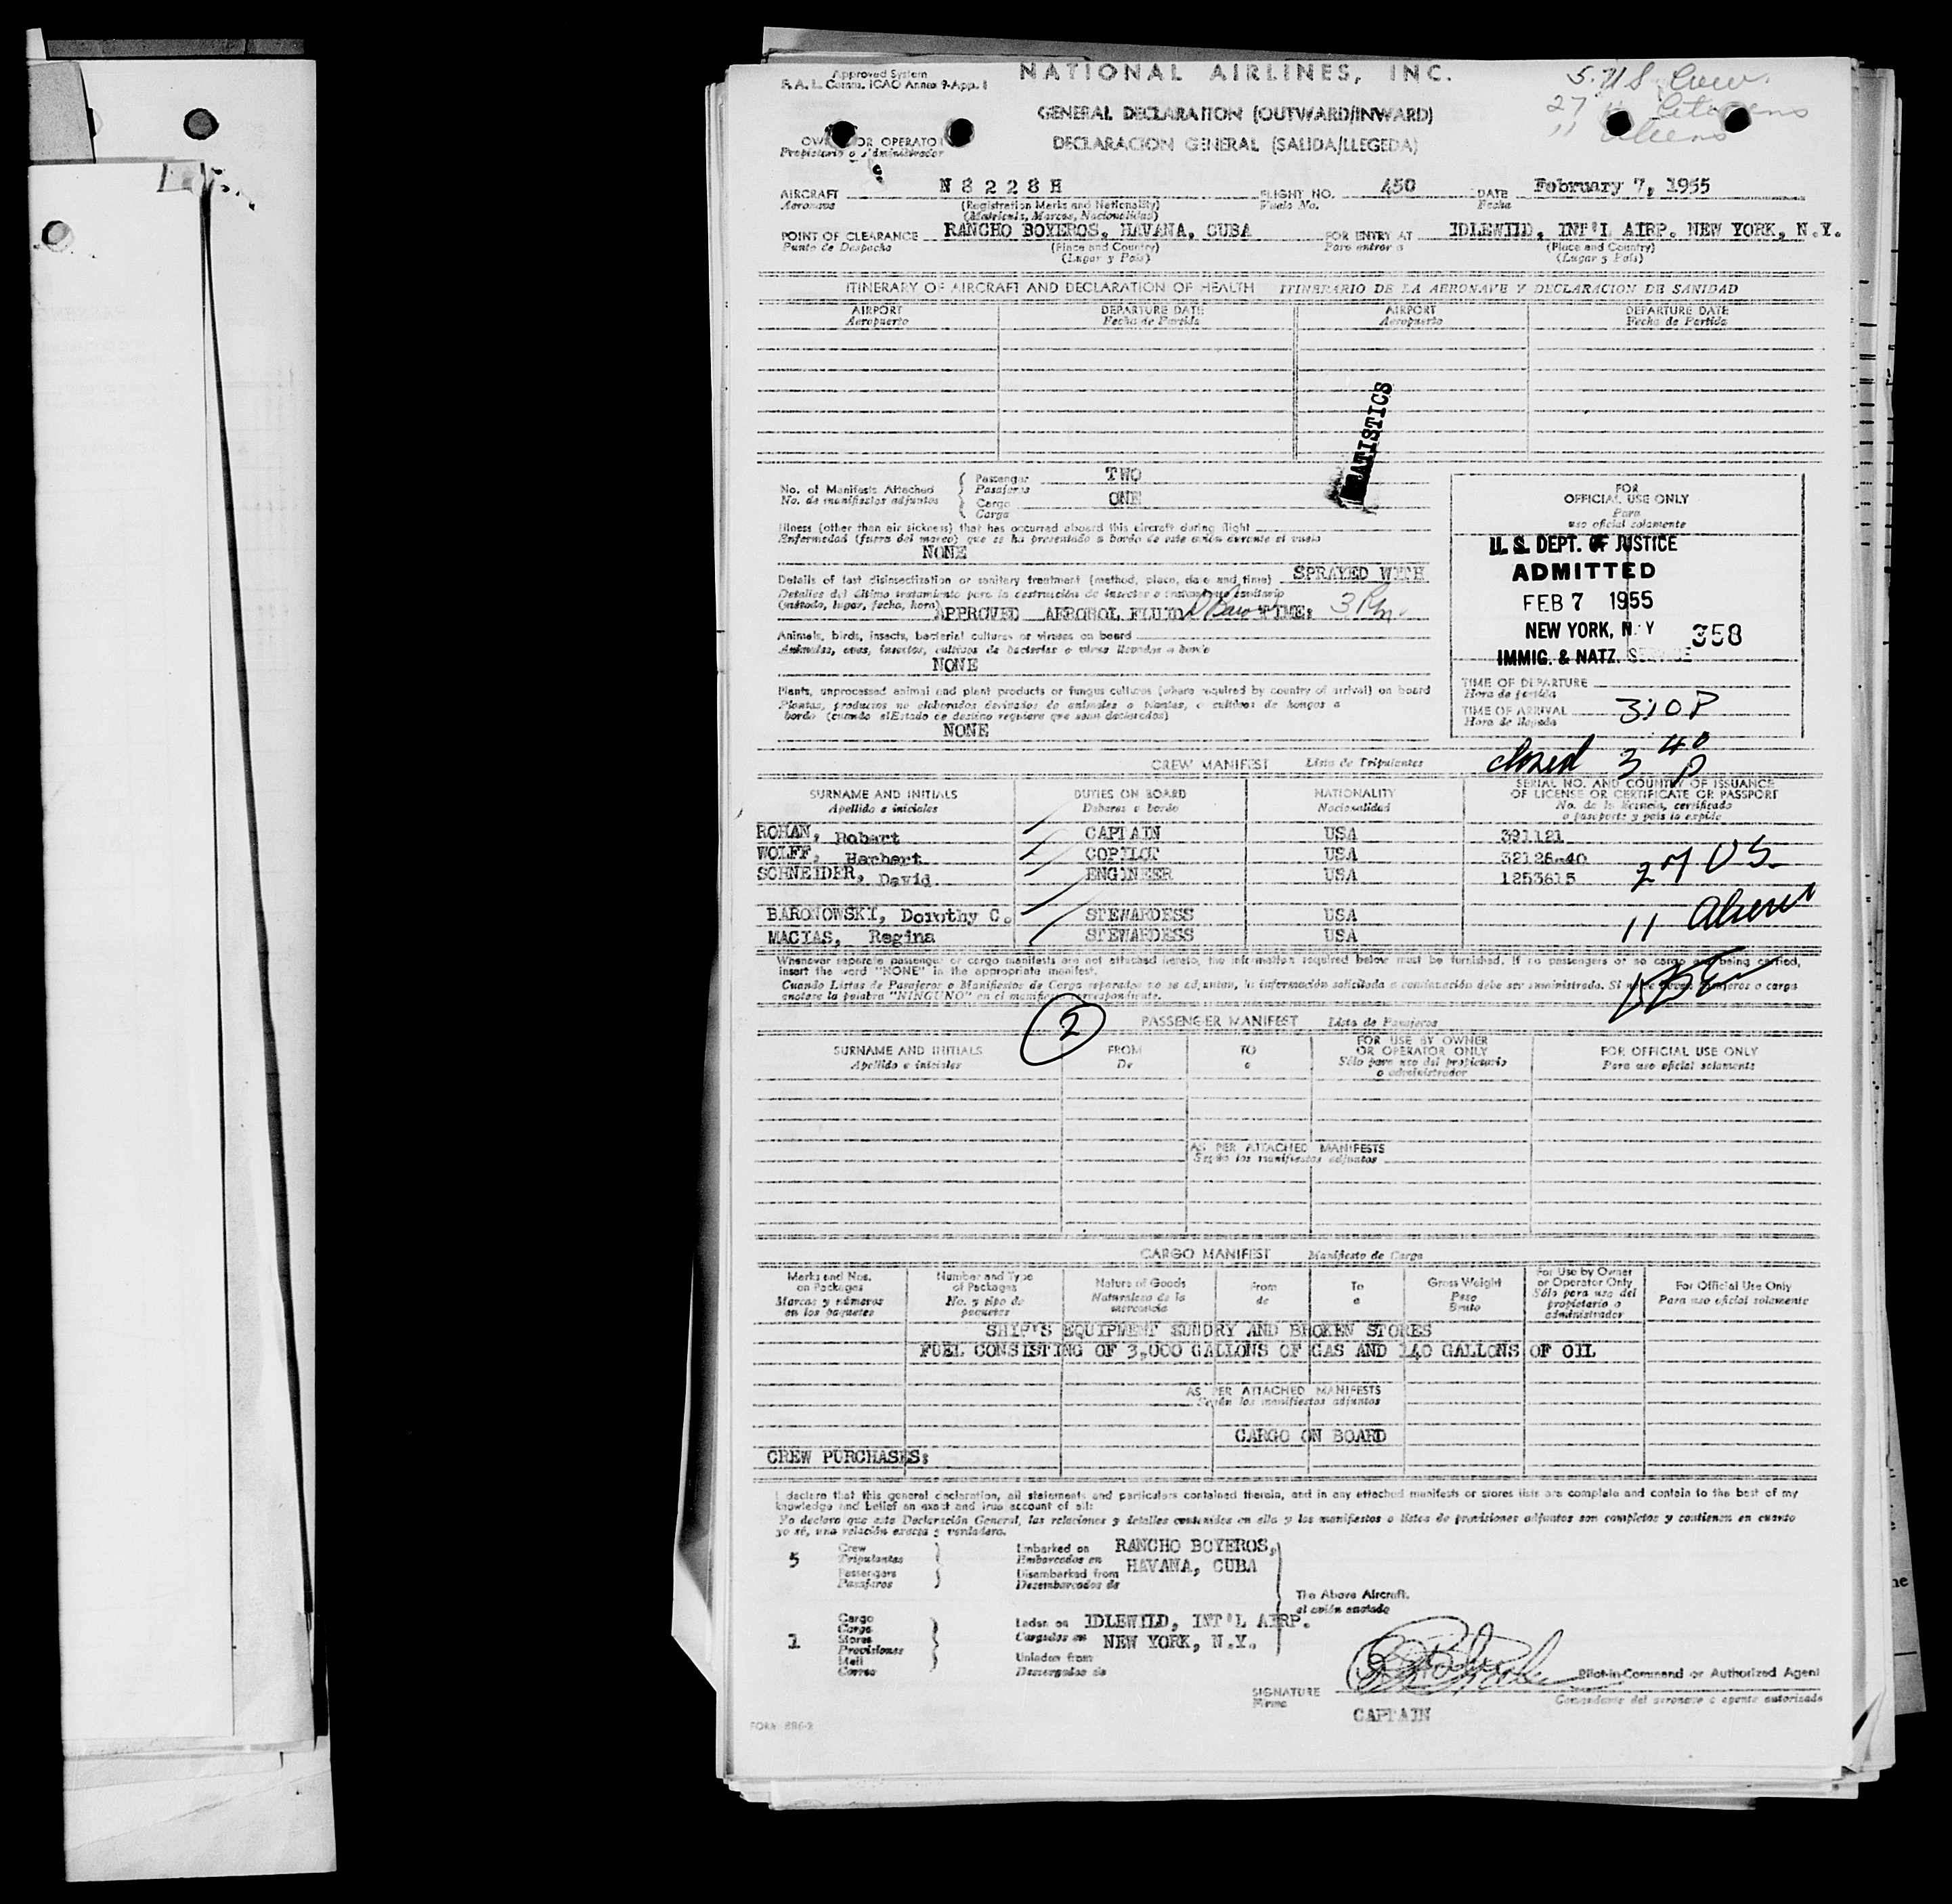 Approved System
F. A. L. Comm. ICAO Annex 9-App. 1
NATIONAL AIRLINES, INC.
5. U S Crew.
27 U Citizens
11 Aliens
GENERAL DECLARATION (OUTWARD/INWARD)
DECLARACION GENERAL (SALIDA/LLEGEDA)
OWNER OR OPERATOR
Propietario o administrador
AIRCRAFT N 8 2 2 8 H FLIGHT NO. 450 DATE February 7, 1955
Aeronave (Registration Marks and Nationality) Vuelo No. Fecha
(Matricula, Marcas, Nacionalidad)
POINT OF CLEARANCE RANCHO BOYEROS, HAVANA, CUBA FOR ENTRY AT IDLEWILD, INT'L AIRP. NEW YORK, N.Y.
Punto de Despacho (Place and Country) Para entrar a (Place and Country)
(Lugar y País) (Lugar y País)
ITINERARY OF AIRCRAFT AND DECLARATION OF HEALTH ITINERARIO DE LA AERONAVE Y DECLARACION DE SANIDAD
AIRPORT DEPARTURE DATE AIRPORT DEPARTURE DATE
Aeropuerto Fecha de Partida Aeropuerto Fecha de Partida
STATISTICS
No. of Manifests Attached Passenger TWO
No. de manifiestos adjuntos Pasajeros
Cargo ONE
Carga
Illness (other than air sickness) that has occurred aboard this aircraft during flight
Enfermedad (fuera del mareo) que se ha presentado a bordo de este avión durante el vuelo
NONE
Details of last disinsectization or sanitary treatment (method, place, date and time) SPRAYED WITH
Detalles del último tratamiento para la destrucción de insectos o tratamiento sanitario
(método, lugar, fecha, hora) APPROVED AEROSOL FLUID TIME: 3 Pm
Animals, birds, insects, bacterial cultures or viruses on board
Animales, aves, insectos, cultivos de bacterias o virus llevados a bordo
NONE
Plants, unprocessed animal and plant products or fungus cultures (where required by country of arrival) on board
Plantas, productos no elaborados derivados de animales o plantas, o cultivos de hongos a
bordo (cuando el Estado de destino requiere que sean declarados)
NONE
FOR
OFFICIAL USE ONLY
Para
uso oficial solamente
U. S. DEPT. OF JUSTICE
ADMITTED
FEB 7 1955
NEW YORK, N. Y 358
IMMIG. & NATZ. SERVICE
TIME OF DEPARTURE
Hora de partida
TIME OF ARRIVAL 3:10 P
Hora de llegada
closed 3 40 P
CREW MANIFEST Lista de Tripulantes
SURNAME AND INITIALS DUTIES ON BOARD NATIONALITY SERIAL NO. AND COUNTRY OF ISSUANCE
OF LICENSE OR CERTIFICATE OR PASSPORT
Apellido e iniciales Deberes a bordo Nacionalidad No. de la licencia, certificado
o pasaporte y país lo expide
ROHAN, Robert CAPTAIN USA 391121
WOLFF, Herbert COPILOT USA 32126-40
SCHNEIDER, David ENGINEER USA 1253615
BARONOWSKI, Dorothy C. STEWARDESS USA
MACIAS, Regina STEWARDESS USA
27 US
11 Aliens
Whenever separate passenger or cargo manifests are not attached hereto, the information required below must be furnished. If no passengers or no cargo are being carried,
insert the word "NONE" in the appropriate manifest.
Cuando Listas de Pasajeros o Manifiestos de Carga separados no se adjuntan, la información solicitada a continuación debe ser suministrada. Si no se llevan pasajeros o carga
anótese la palabra "NINGUNO" en el manifiesto correspondiente.
2
PASSENGER MANIFEST Lista de Pasajeros
SURNAME AND INITIALS FROM TO FOR USE BY OWNER OR OPERATOR ONLY FOR OFFICIAL USE ONLY
Apellido e iniciales De a Sólo para uso del propietario o administrador Para uso oficial solamente
AS PER ATTACHED MANIFESTS
Según los manifiestos adjuntos
CARGO MANIFEST Manifiesto de Carga
Marks and Nos. on Packages Number and Type of Packages Nature of Goods From To Gross Weight For Use by Owner or Operator Only For Official Use Only
Marcas y números en los paquetes No. y tipo de paquetes Naturaleza de la mercancía de a Peso Bruto Sólo para uso del propietario o administrador Para uso oficial solamente
SHIP'S EQUIPMENT SUNDRY AND BROKEN STORES
FUEL CONSISTING OF 3,000 GALLONS OF GAS AND 140 GALLONS OF OIL
AS PER ATTACHED MANIFESTS
Según los manifiestos adjuntos
CARGO ON BOARD
CREW PURCHASES:
I declare that this general declaration, all statements and particulars contained therein, and in any attached manifests or stores lists are complete and contain to the best of my
knowledge and belief an exact and true account of all:
Yo declaro que esta Declaración General, las relaciones y detalles contenidos en ella y los manifiestos o listas de provisiones adjuntos son completos y contienen en cuanto
yo sé, una relación exacta y verdadera.
5 Crew Embarked on RANCHO BOYEROS,
Tripulantes Embarcados en HAVANA, CUBA
Passengers Disembarked from
Pasajeros Desembarcados de
The Above Aircraft.
el avión anotado
1 Cargo Laden on IDLEWILD, INT'L AIRP.
Carga
Stores Cargados en NEW YORK, N.Y.
Provisiones
Mail Unladen from
Correo Descargados de
SIGNATURE Pilot-in-Command or Authorized Agent
Firma Comandante del aeronave o agente autorizado
CAPTAIN
FORM 886-2